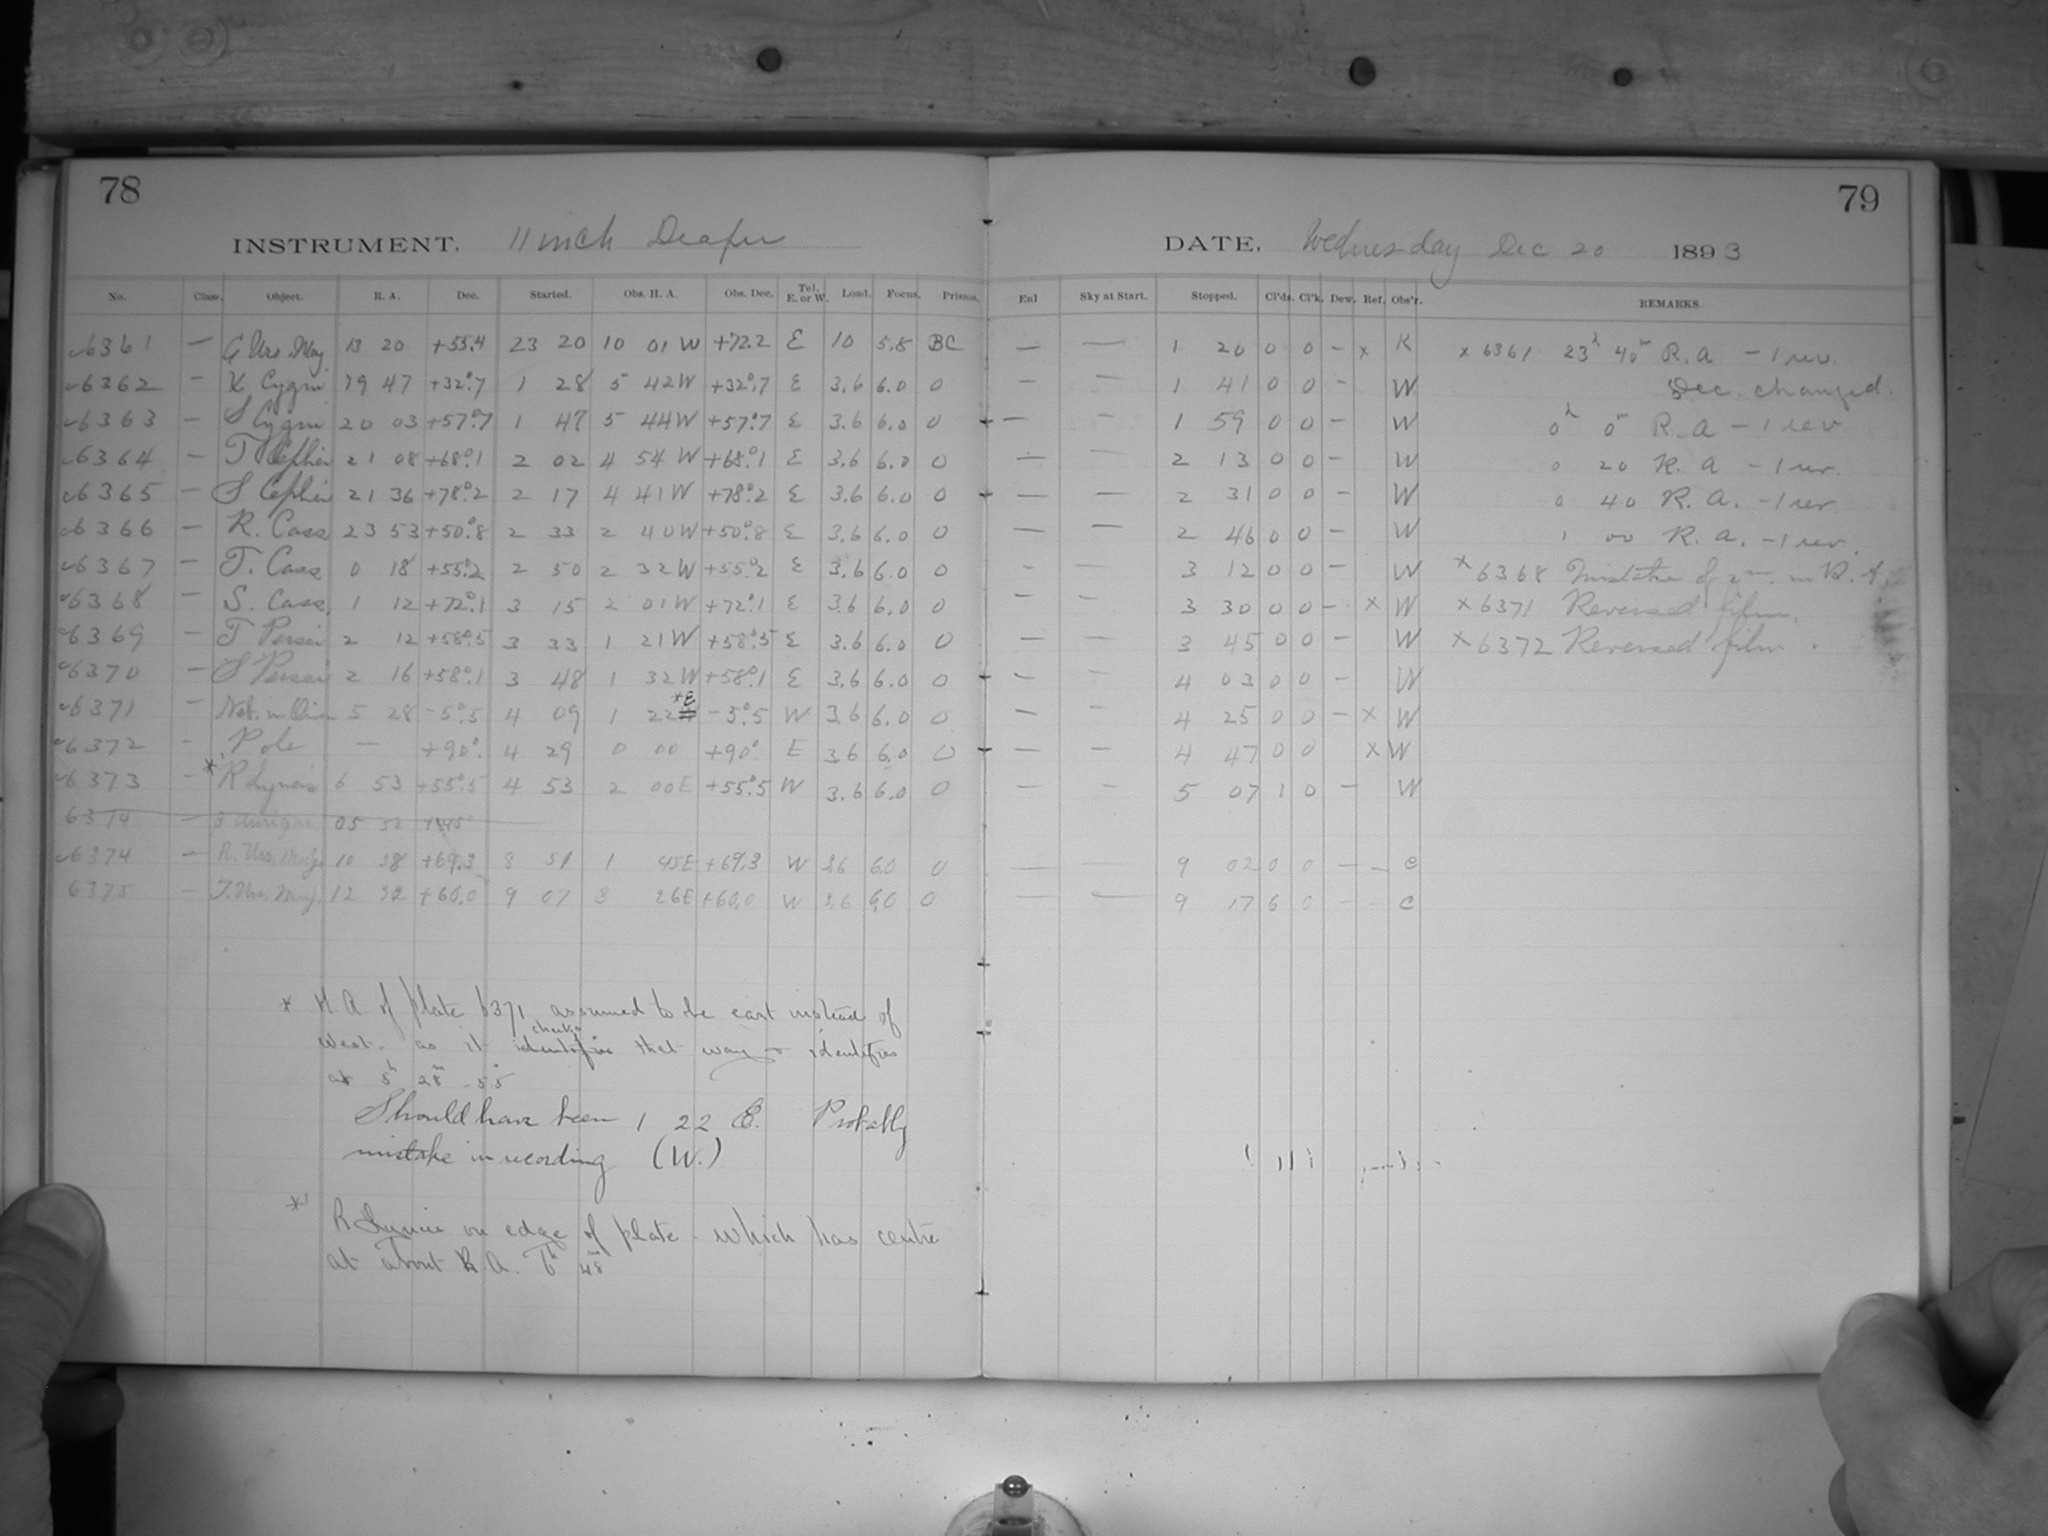 78
INSTRUMENT. 11 inch Draper
No. Class. Object. R. A. Dec. Started. Obs. H. A. Obs. Dec. Tel. E. or W. Load. Focus. Prisms.
6361 — G Urs. Maj. 13 20 +55.4 23 20 10 01 W +72.2 E 10 5.8 BC
6362 — X Cygni 19 47 +32°.7 1 28 5 42 W +32°.7 E 3.6 6.0 0
6363 — S Cygni 20 03 +57°.7 1 47 5 44 W +57°.7 E 3.6 6.0 0
6364 — T Cephei 21 08 +68°.1 2 02 4 54 W +68°.1 E 3.6 6.0 0
6365 — S Cephei 21 36 +78°.2 2 17 4 41 W +78°.2 E 3.6 6.0 0
6366 — R. Cass 23 53 +50°.8 2 33 2 40 W +50°.8 E 3.6 6.0 0
6367 — T. Cass 0 18 +55°.2 2 50 2 32 W +55°.2 E 3.6 6.0 0
6368 — S. Cass. 1 12 +72°.1 3 15 2 01 W +72°.1 E 3.6 6.0 0
6369 — T Persei 2 12 +58°.5 3 33 1 21 W +58°.5 E 3.6 6.0 0
6370 — S Persei 2 16 +58°.1 3 48 1 32 W +58°.1 E 3.6 6.0 0
6371 — Neb. in Orion 5 28 -5°.5 4 09 1 22 *E -5°.5 W 3.6 6.0 0
6372 - Pole — +90°. 4 29 0 00 +90° E 3.6 6.0 0
6373 - *' R Lyncis 6 53 +55°.5 4 53 2 00 E +55°.5 W 3.6 6.0 0
6374 — Aurigae 05 52 +45°
6374 — R. Urs. Maj. 10 38 +69.3 8 51 1 45 E +69.3 W 3.6 6.0 0
6375 — T. Urs. Maj. 12 32 +60.0 9 07 3 26 E +60.0 W 3.6 6.0 0
* H. A. of plate 6371 assumed to be east instead of
west - as it checks identifies that way & identifies
at 5h 28m -5°.5
Should have been 1 22 E. Probably
mistake in recording (W.)
*' R Lyncis on edge of plate - which has centre
at about R.A. 6h 48m
79
DATE. Wednesday Dec 20 1893
Enl Sky at Start. Stopped. Cl'ds. Cl'k. Dew. Ref. Obs'r. REMARKS.
— — 1 20 0 0 - x K x 6361 23h 40m R.A. - 1 rev.
- — 1 41 0 0 - W Dec. changed.
— - 1 59 0 0 - W 0h 0m R.A - 1 rev
— — 2 13 0 0 - W 0 20 R.A - 1 rev.
— — 2 31 0 0 - W 0 40 R.A. - 1 rev.
— — 2 46 0 0 - W 1 00 R.A. - 1 rev.
- - 3 12 0 0 - W x 6368 Mistake of 2m. in R.A.
- - 3 30 0 0 - x W x 6371 Reversed film.
— — 3 45 0 0 - W x 6372 Reversed film.
- - 4 03 0 0 - W
- - 4 25 0 0 - x W
— - 4 47 0 0 x W
— - 5 07 1 0 - W
— — 9 02 0 0 — - C
— — 9 17 6 0 - - C